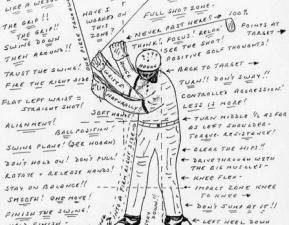 LIKE A WE
THE GRIP!!
THE GRIP!!
SWING DOWN
THEN AROUND!!
TRUST THE SWING!
FIRE THE RIGHT SIDE
FLAT LEFT WRIST =
STRAIGHT SHOT!
ALIGNMENT!
BALL POSITION!
SWING PLANE! (SEE HOGAN)
DON'T HOLD ON! DON'T PULL!
ROTATE + RELEASE HANDS!
STAY ON BALANCE!!
SMOOTH! ONE MOVE!
FINISH THE SWING!
HAVE I
WORKED ON
THIS ZONE?
SOFT HANDS!
NATURALLY
FULL SHOT ZONE!
NEVER PAST HERE!
100%
THINK, FOCUS, RELAX
SEE THE SHOT!
POSITIVE GOLF THOUGHTS!
POINTS AT
TARGET
BACK TO TARGET
TURN!! DON'T SWAY!!
CONTROLLED AGGRESSION!
LESS IS MORE!
TURN MIDDLE 1/2 AS FAR
AS LEFT SHOULDER =
TORQUE + RESISTANCE!
CLEAR THE HIPS!!
DRIVE THROUGH WITH
THE BIG MUSCLES
KNEE FLEX
IMPACT ZONE KNEE
TO KNEE
DON'T JUMP AT IT!!
LEFT HEEL DOWN